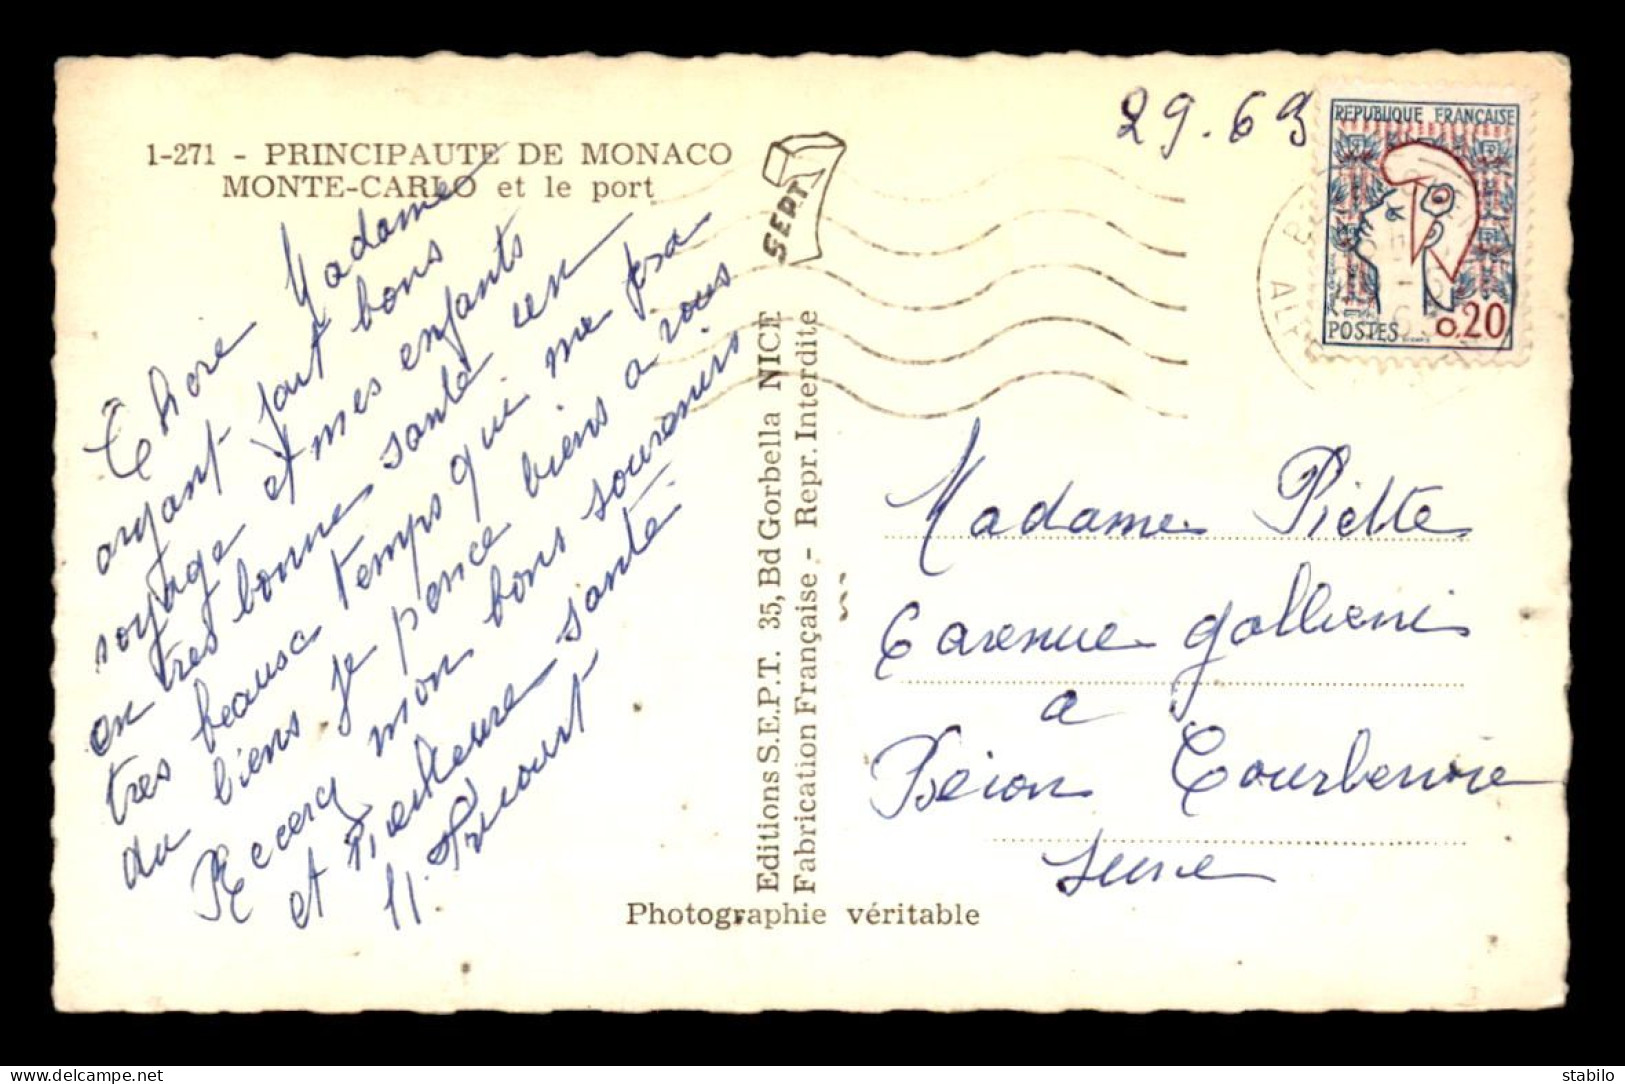 1-271 - PRINCIPAUTE DE MONACO
MONTE-CARLO et le port
SEPT
29.63
REPUBLIQUE FRANÇAISE
POSTES 0,20
Chere Madame
ayant fait bons
voyage et mes enfants
en tres bonne santé un
tres beause temps qui me fera
du biens je pence biens a vous
Recevez mon bons souvenirs
et Meilleure santé.
Editions S.E.P.T. 35, Bd Gorbella NICE
Fabrication Française - Repr. Interdite
Photographie véritable
Madame Piette
6 avenue gallieni
a
Bécon Courbevoie
seine
delcampe.net
stabilo